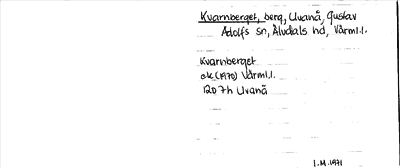 Kvarnberget, berg, Uvanå, Gustav
Adolfs sn, Älvdals hd, Värml.l.
Kvarnberget
ek.(1970) Värml.l.
12D 7h Uvanå
I.M. 1971